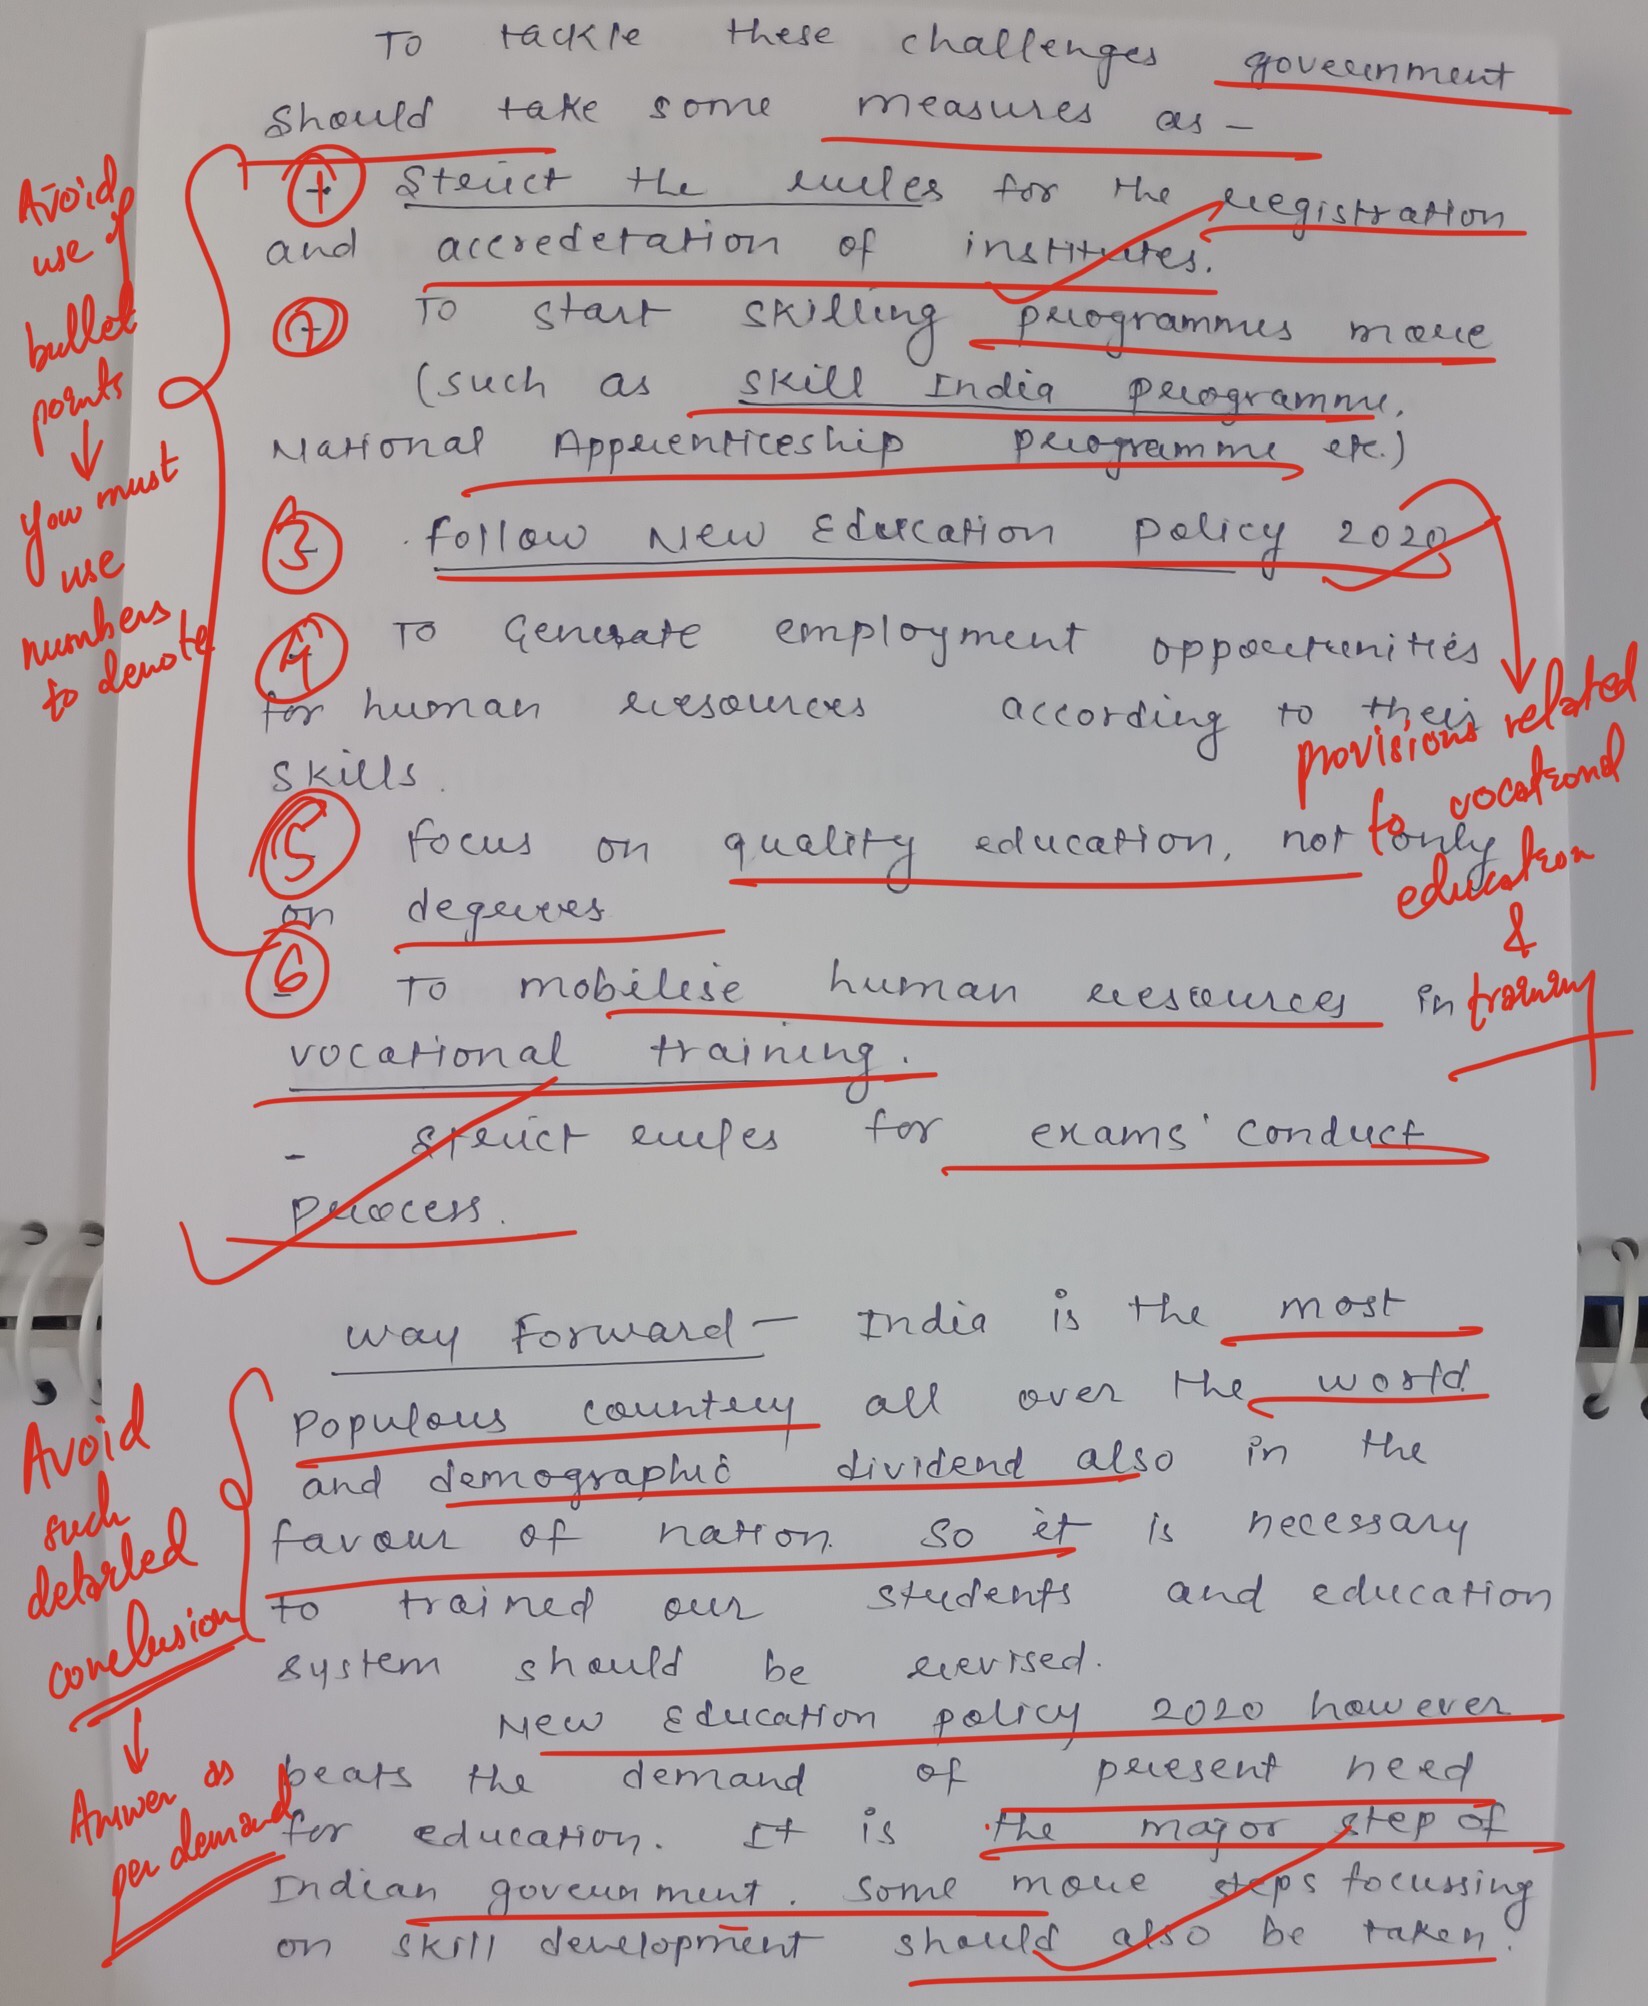 To tackle these challenges government
should take some measures as -
1 Strict the rules for the registration
and accredetation of institutes.
2 To start skilling programmes more
(such as skill India programme,
National Apprenticeship programme etc.)
3 follow New Education Policy 2020
4 To Generate employment opportunities
for human resources according to their
skills.
5 focus on quality education, not only
on degrees
6 To mobilise human resources in
vocational training.
- Strict rules for exams' conduct
process.
Way Forward - India is the most
populous country all over the world
and demographic dividend also in the
favour of nation. So it is necessary
to trained our students and education
system should be revised.
New Education policy 2020 however
beats the demand of present need
for education. It is the major step of
Indian government. Some more steps focussing
on skill development should also be taken.
Avoid
use of
bullet
points
↓
you must
use
numbers
to denote
provisions related
to vocational
education
&
training
Avoid
such
detailed
conclusion
↓
Answer as
per demand